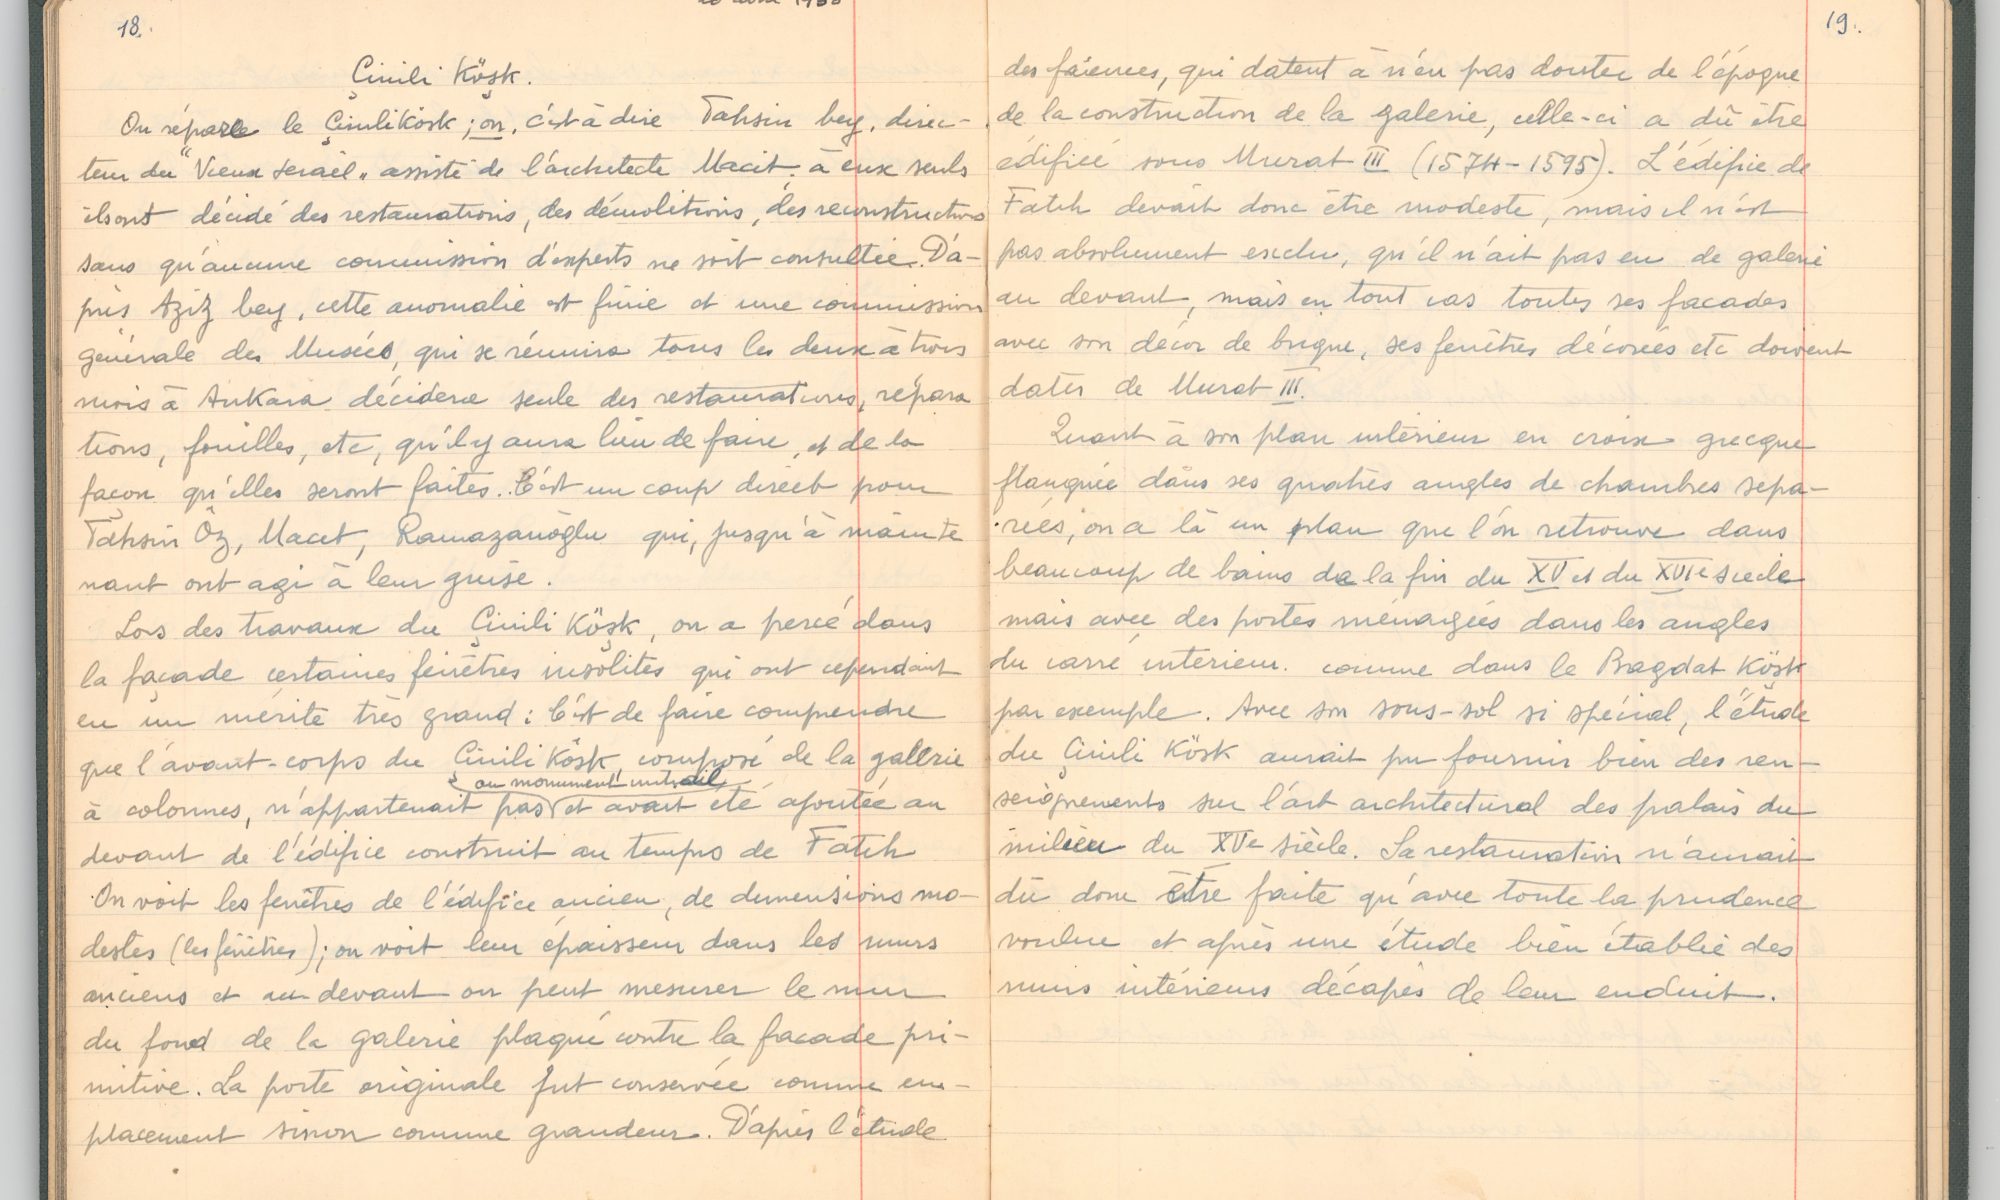 18.
Çinili Köşk.
On répare le Çinili Kösk ; on, c'est à dire Tahsin bey, direc-
teur du "Vieux Seraël" assisté de l'architecte Macit. à eux seuls
ils ont décidé des restaurations, des démolitions, des reconstructions
sans qu'aucune commission d'experts ne soit consultée. D'a-
près Aziz bey, cette anomalie est finie et une commission
générale des Musées, qui se réunira tous les deux à trois
mois à Ankara décidera seule des restaurations, répara
tions, fouilles, etc, qu'il y aura lieu de faire, et de la
façon qu'elles seront faites. C'est un coup direct pour
Tahsin Öz, Macit, Ramazanoğlu qui, jusqu'à mainte
nant ont agi à leur guise.
Lors des travaux du Çinili Köşk, on a percé dans
la façade certaines fenêtres insolites qui ont cependant
eu un mérite très grand : C'est de faire comprendre
que l'avant-corps du Çinili Kösk composé de la gallerie
au monument initial
à colonnes, n'appartenait pas et avait été ajoutée au
devant de l'édifice construit au temps de Fatih
On voit les fenêtres de l'édifice ancien, de dimensions mo-
destes (les fenêtres) ; on voit leur épaisseur dans les murs
anciens et au devant on peut mesurer le mur
du fond de la galerie plaqué contre la facade pri-
mitive. La porte originale fut conservée comme em-
placement sinon comme grandeur. D'après l'étude
19.
des faïences, qui datent à n'en pas douter de l'époque
de la construction de la galerie, celle-ci a dû être
édifiée sous Murat III (1574-1595). L'édifice de
Fatih devait donc être modeste, mais il n'est
pas absolument exclu, qu'il n'ait pas eu de galerie
au devant, mais en tout cas toutes ses facades
avec son décor de brique, ses fenêtres décorées etc doivent
dater de Murat III.
Quant à son plan intérieur en croix grecque
flanquée dans ses quatres angles de chambres sepa-
rées, on a là un plan que l'on retrouve dans
beaucoup de bains de la fin du XV et du XVIe siecle
mais avec des portes ménagées dans les angles
du carré interieur. comme dans le Bagdat Köşk
par exemple. Avec son sous-sol si spécial, l'étude
du Çinili Kösk aurait pu fournir bien des ren-
seignements sur l'art architectural des palais du
milieu du XVe siècle. La restauration n'aurait
dû donc être faite qu'avec toute la prudence
voulue et après une étude bien établie des
murs intérieurs décapés de leur enduit.